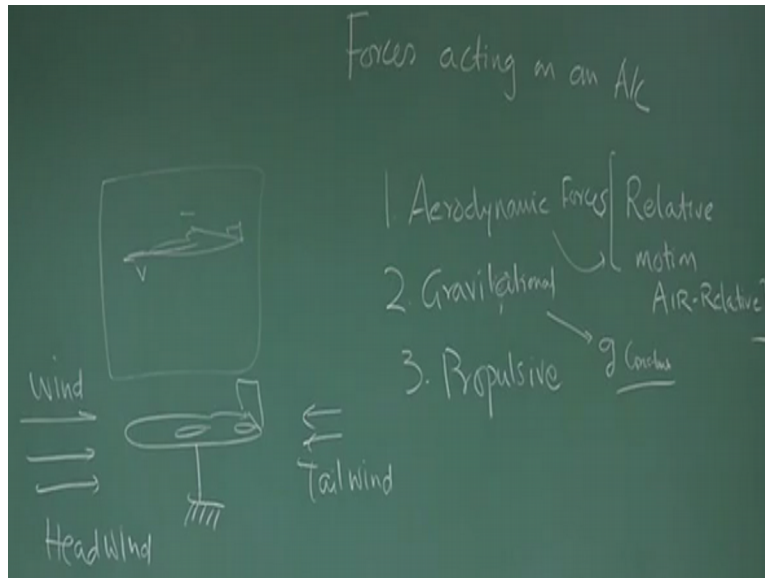 Forces acting on an A/C
1. Aerodynamic Forces
Relative
motion
AIR-Relative
2. Gravitational
g Constant
3. Propulsive
V
Wind
Tailwind
Headwind